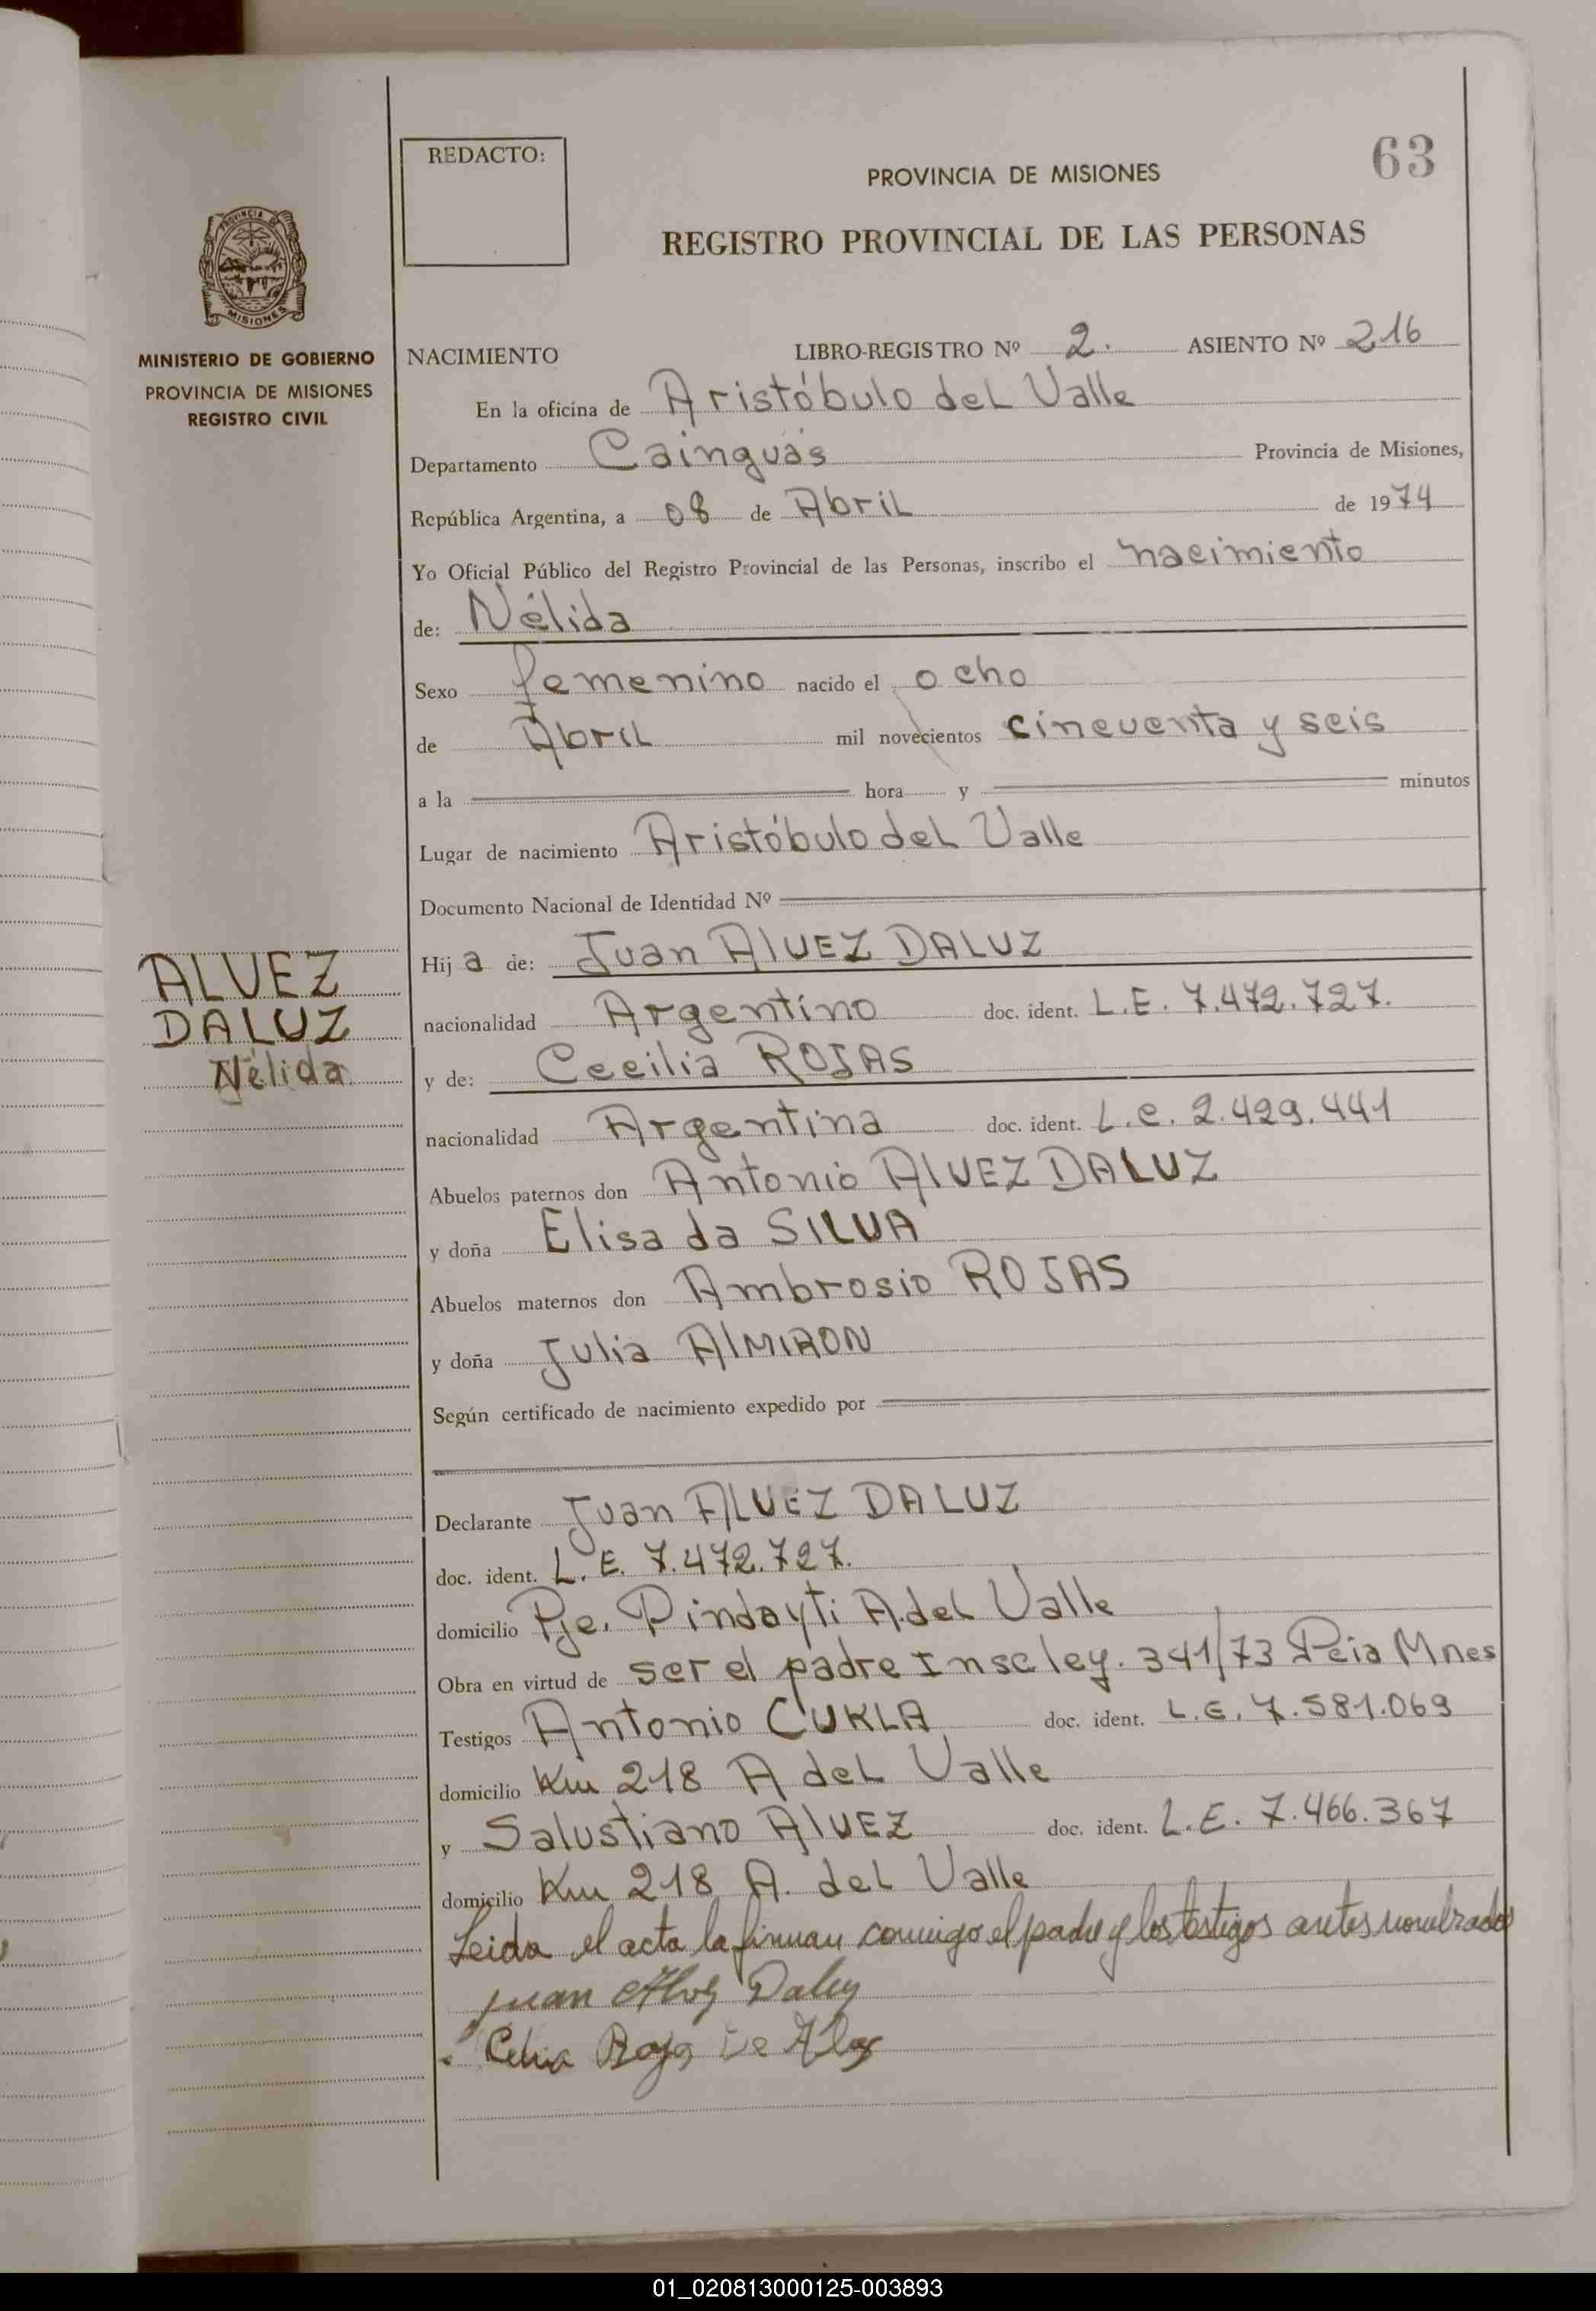 63
REDACTO:
PROVINCIA DE MISIONES
REGISTRO PROVINCIAL DE LAS PERSONAS
PROVINCIA DE
MISIONES
MINISTERIO DE GOBIERNO
PROVINCIA DE MISIONES
REGISTRO CIVIL
NACIMIENTO LIBRO-REGISTRO Nº 2. ASIENTO Nº 216
En la oficina de Aristóbulo del Valle
Departamento Cainguás Provincia de Misiones,
República Argentina, a 08 de Abril de 1974
Yo Oficial Público del Registro Provincial de las Personas, inscribo el nacimiento
de: Nélida
Sexo femenino nacido el ocho
de Abril mil novecientos cincuenta y seis
a la hora y minutos
Lugar de nacimiento Aristóbulo del Valle
Documento Nacional de Identidad Nº
ALVEZ
DALUZ
Nélida
Hija de: Juan AlVEZ DALUZ
nacionalidad Argentino doc. ident. L.E. 7.472.727.
y de: Cecilia ROJAS
nacionalidad Argentina doc. ident. L.C. 2.429.441
Abuelos paternos don Antonio AlVEZ DALUZ
y doña Elisa da SILVA
Abuelos maternos don Ambrosio ROJAS
y doña Julia AlMIRON
Según certificado de nacimiento expedido por
Declarante Juan ALVEZ DALUZ
doc. ident. L.E. 7.472.727.
domicilio Pje. Pindayti A.del Valle
Obra en virtud de ser el padre Insc ley. 341/73 Pcia Mnes
Testigos Antonio CUKLA doc. ident. L.E. 7.581.069
domicilio Km 218 A del Valle
y Salustiano AlVEZ doc. ident. L.E. 7.466.367
domicilio Km 218 A. del Valle
Leida el acta la firman conmigo el padre y los testigos antes nombrados
Juan Alvez Daluz
Rojas de
01_020813000125-003893